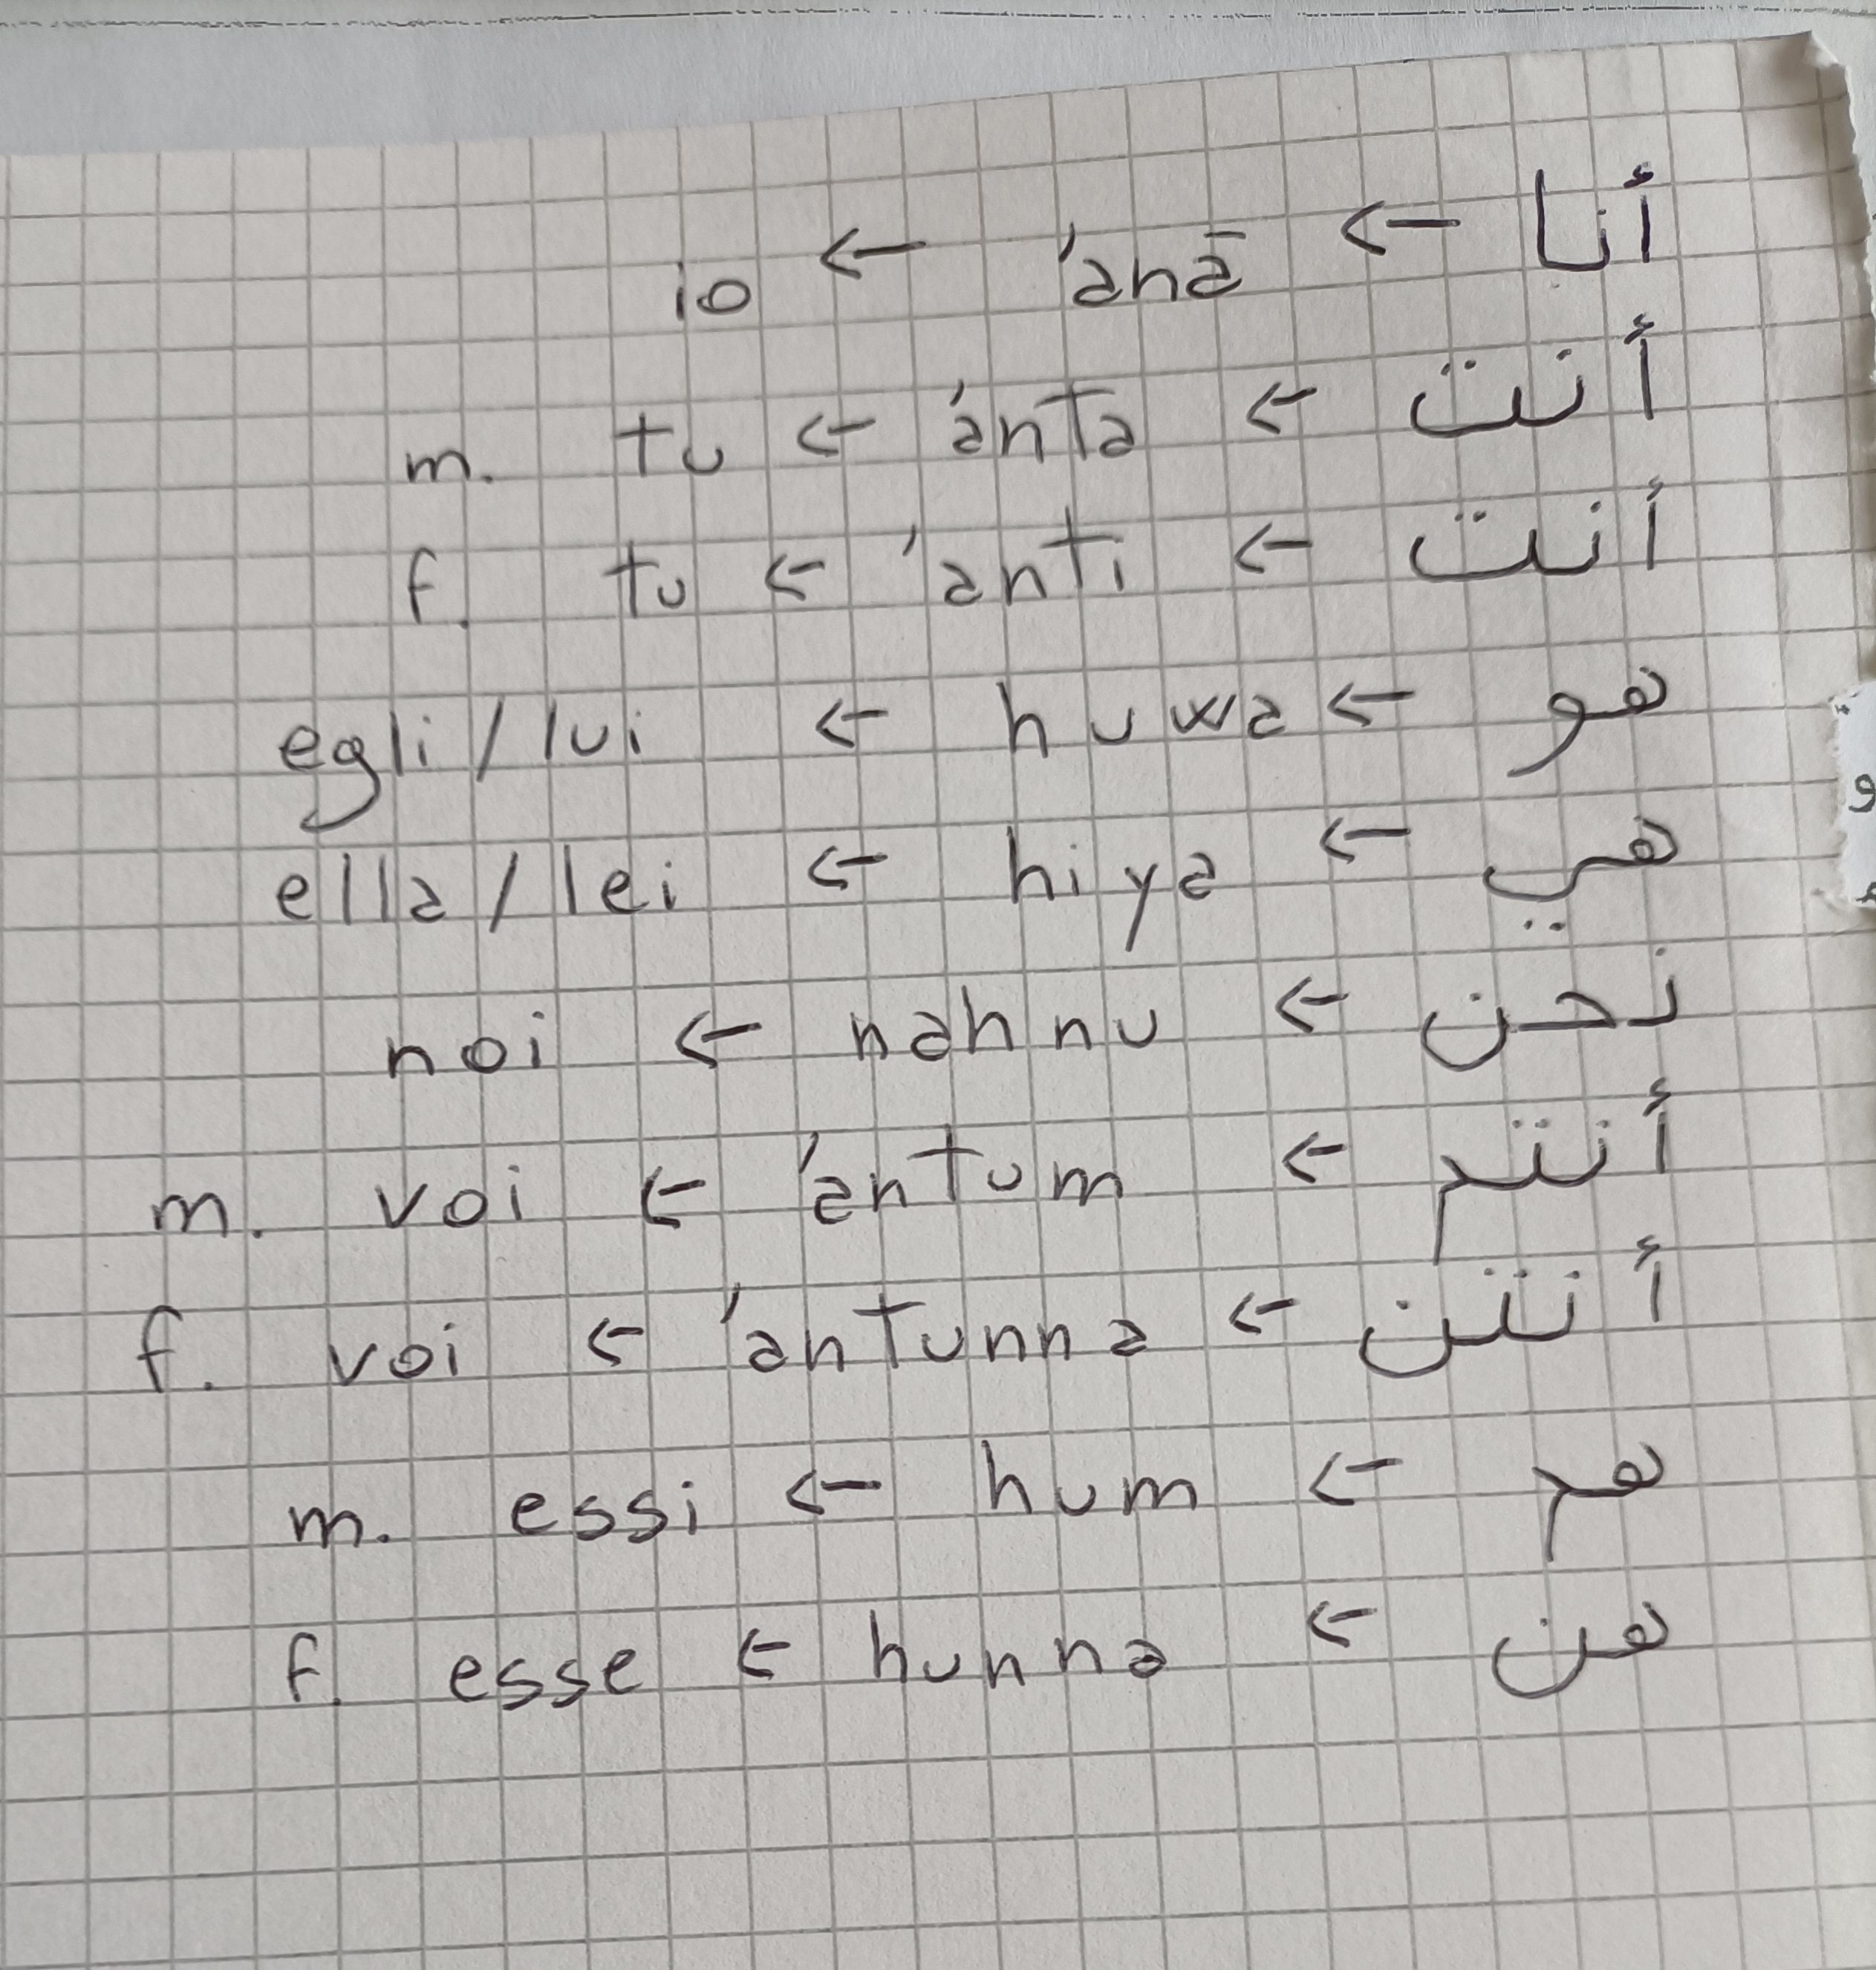 أنا ← 'anā ← io
أنت ← 'anta ← tu m.
أنت ← 'anti ← tu f.
هو ← huwa ← egli/lui
هي ← hiya ← ella/lei
نحن ← nahnu ← noi
أنتم ← 'antum ← voi m.
أنتن ← 'antunna ← voi f.
هم ← hum ← essi m.
هن ← hunna ← esse f.